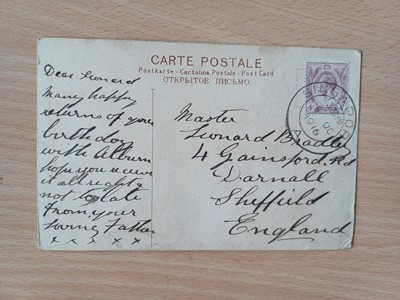 CARTE POSTALE
Postkarte - Cartolina Postale - Post Card
ОТКРЫТОЕ ПИСЬМО.
Dear Leonard
Many happy
returns of your
birthday
with Album
hope you receive
it all right &
not to late
From your
loving Father
x x x x x
Master
Leonard Bradley
4 Gainsford Rd
Darnall
Sheffield
England